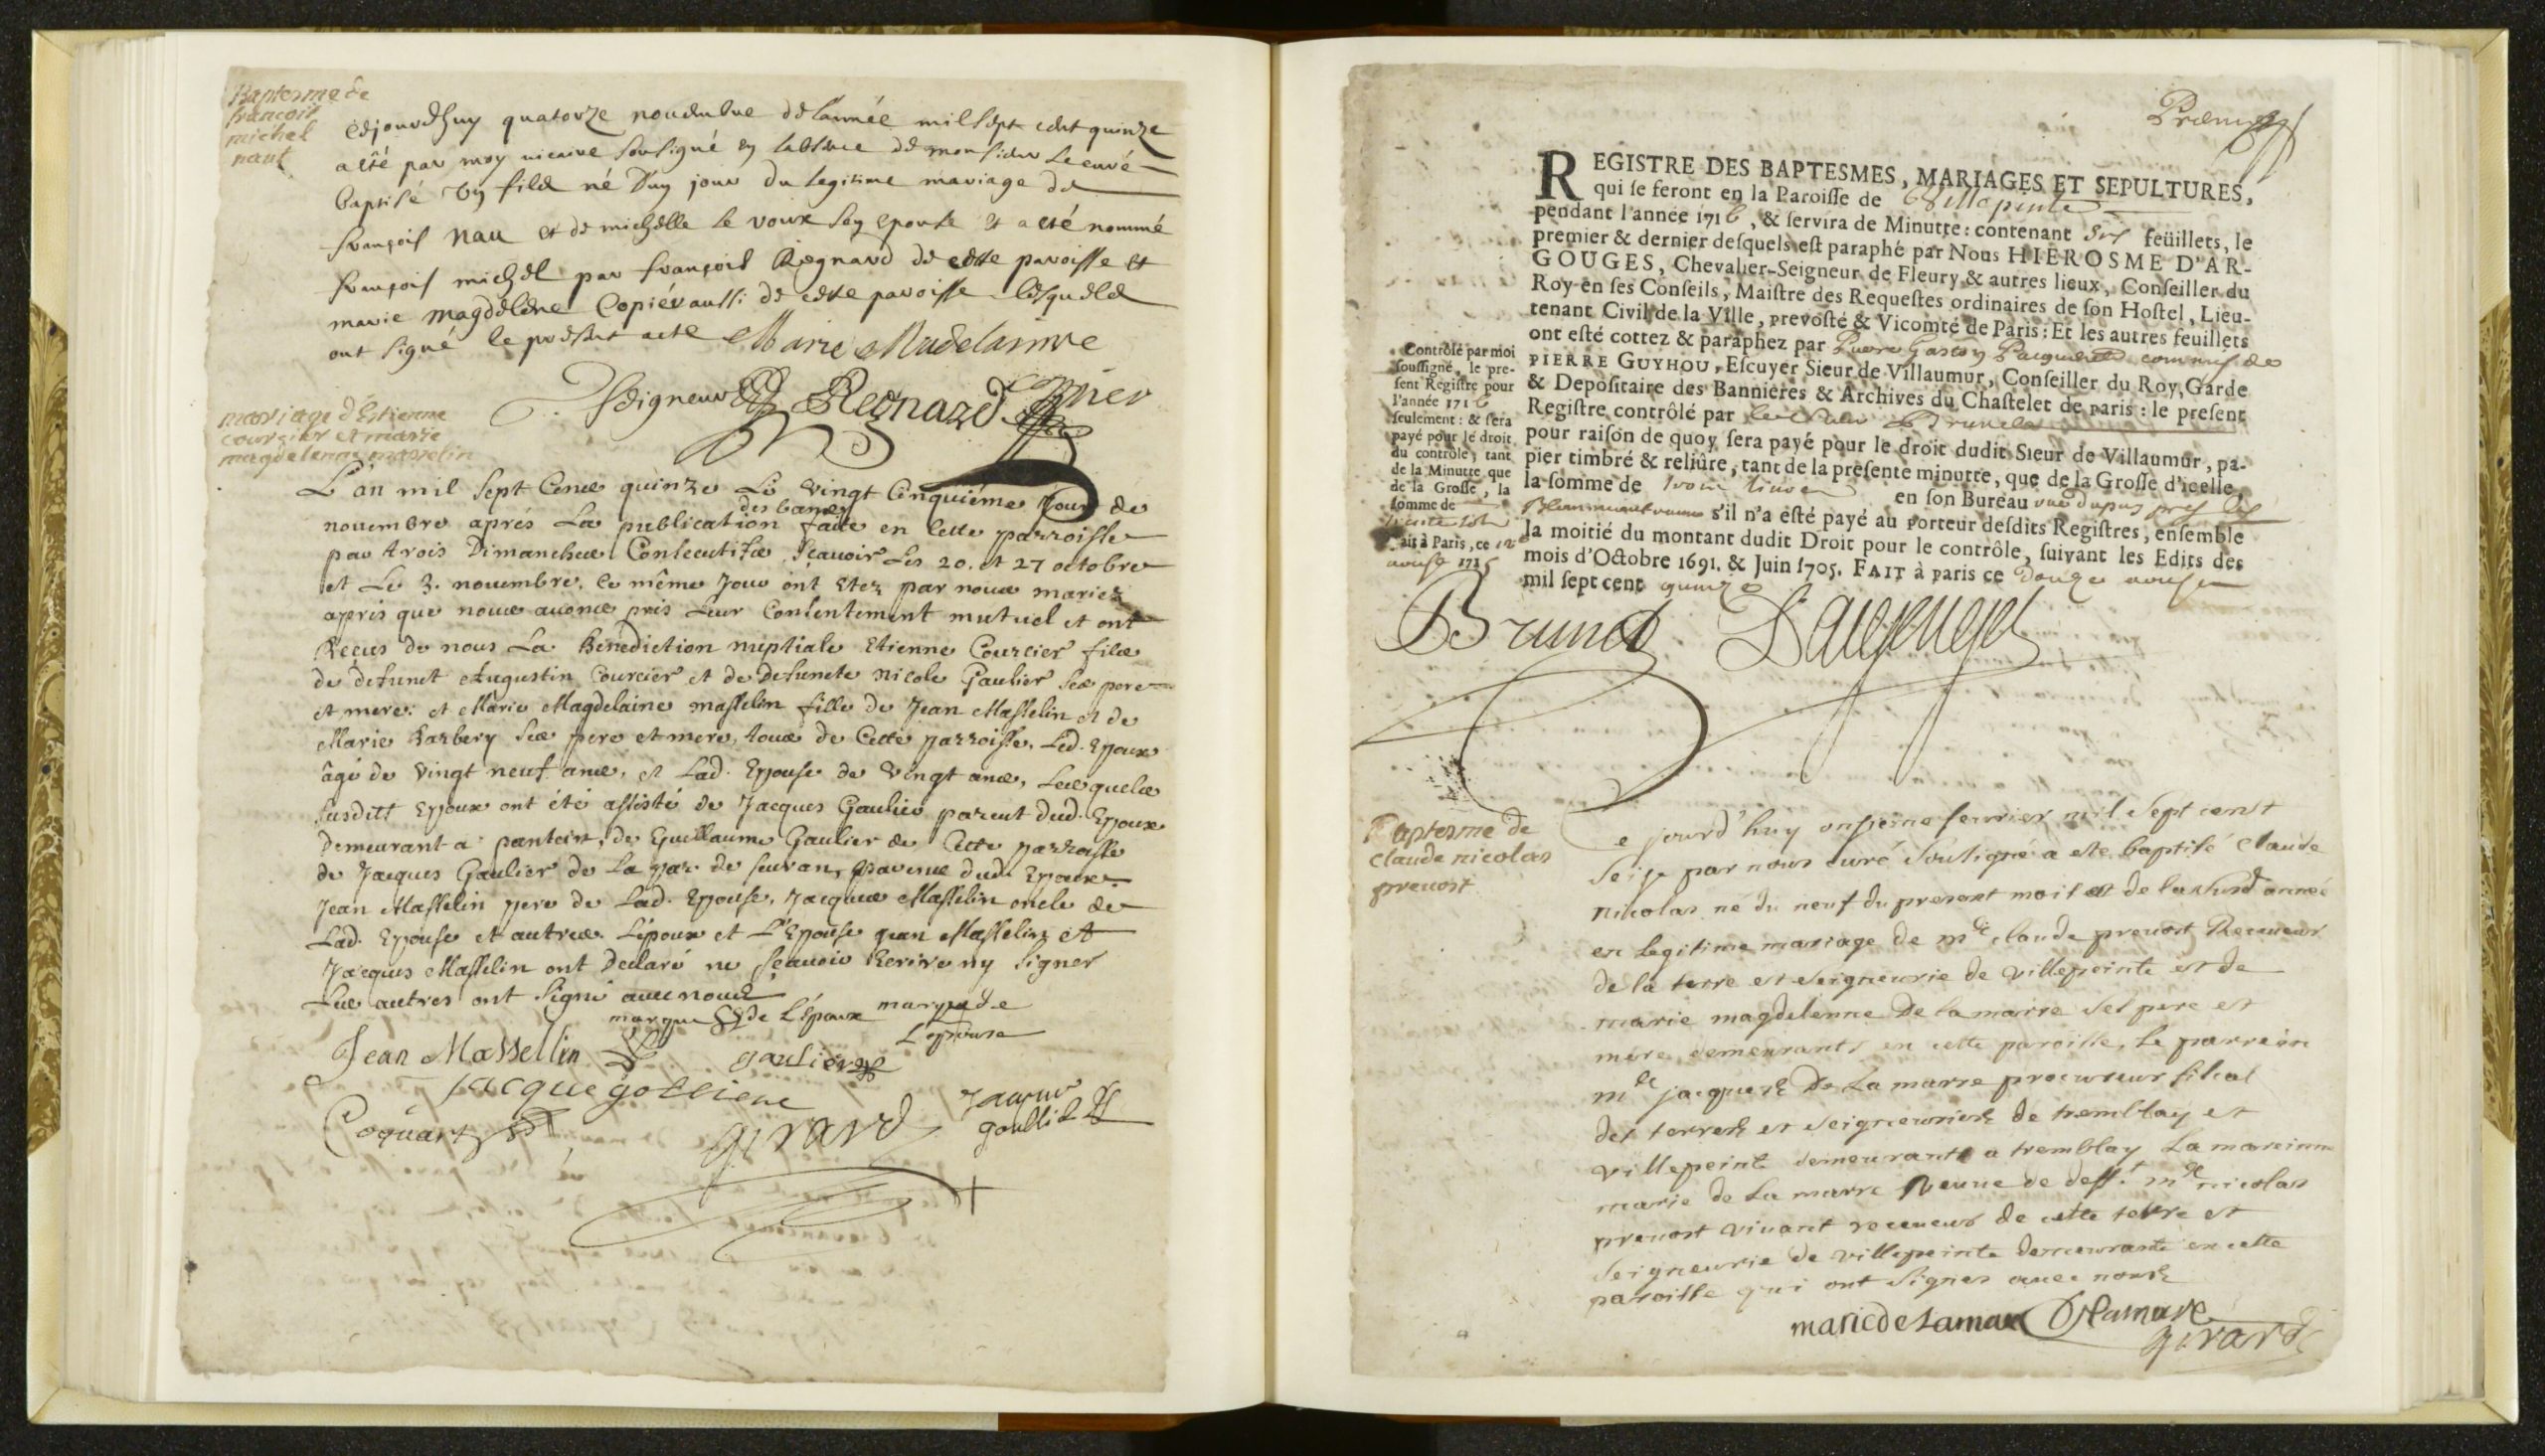 Baptesme de
françois
michel
naut
cejourdhuy quatorze nouembre de lannée mil sept cent quinze
a eté par moy vicaire sousigné en labsence de monsieur le curé
baptisé un fils né d'un jour du legitime mariage de
françois nau et de michelle le voux son epouse et a eté nommé
françois michel par françois Regnard de cette paroisse et
marie magdelene Copiér aussi de cette paroisse lesquels
ont signé le present acte Marie Madelainne
Seigneur Regnard Copier
mariage d'Estienne
courcier et marie
magdelenne masselin
L'an mil sept Cens quinze Le vingt Cinquiéme Jour de
des bans
nouembre aprés La publication faite en Cette parroisse
par trois Dimanches Consecutifs, Sçauoir Les 20. et 27 octobre
et Le 3. nouembre. Ce même Jour ont Etez par nous mariez
apris que nous auons pris Leur Consentement mutuel et ont
Reçus de nous La Benediction nuptiale Etienne Courcier fils
de defunct Augustin Courcier et de defuncte Nicole Gaulier Ses pere
et mere: et Marie Magdelaine masselin fille de Jean Masselin et de
Marie Barbery Ses pere et mere, tous de Cette parroisse. Led. Epoux
âgé de Vingt neuf ans, et Lad. Epouse de Vingt ans, Lesquels
Susdits Epoux ont été assisté de Jacques Gaulier parent dud. Epoux
Demeurant a pantin, de Guillaume Gaulier de Cette parroisse
de Jacques Gaulier de La par. de seuran, dud. Epoux.
Jean Masselin pere de Lad. Epouse, Jacques Masselin oncle de
Lad. Epouse et autres. L'époux et L'Epouse Jean Masselin et
Jacques Masselin ont Declaré ne Sçauoir Ecrire ny Signer
Les autres ont Signé auec nous
marque de L'époux marque de
L'epouse
Jean Massellin gaulier
Jacque gollier
Coquart girard
Premier
REGISTRE DES BAPTESMES, MARIAGES ET SEPULTURES,
qui se feront en la Paroisse de Villepinte
pendant l'année 1716, & servira de Minutte: contenant six feüillets, le
premier & dernier desquels est paraphé par Nous HIEROSME D'AR-
GOUGES, Chevalier-Seigneur de Fleury & autres lieux, Conseiller du
Roy en ses Conseils, Maistre des Requestes ordinaires de son Hostel, Lieu-
tenant Civil de la Ville, prevosté & Vicomté de Paris: Et les autres feuillets
ont esté cottez & paraphez par commis de
PIERRE GUYHOU, Escuyer Sieur de Villaumur, Conseiller du Roy, Garde
& Depositaire des Bannieres & Archives du Chastelet de paris: le present
Registre contrôlé par Brunet
pour raison de quoy sera payé pour le droit dudit Sieur de Villaumur, pa-
pier timbré & reliûre, tant de la presente minutte, que de la Grosse d'icelle,
la somme de trois liures en son Bureau
s'il n'a esté payé au porteur desdits Registres, ensemble
la moitié du montant dudit Droit pour le contrôle, suivant les Edits des
mois d'Octobre 1691. & Juin 1705. FAIT à paris ce douze
mil sept cent quinze
Contrôlé par moi
soussigné, le pre-
sent Registre pour
l'année 1716
seulement: & sera
payé pour le droit
du contrôle, tant
de la Minutte que
de la Grosse, la
somme de
trente sols
Fait à Paris, ce 12
1715
Brunet
Baptesme de
claude nicolas
preuost
Ce jourd'huy onzieme feurier mil sept cent
seize par nous curé soussigné a ete baptisé claude
nicolas né du neuf du present mois et de la susd année
en legitime mariage de me claude preuost Receueur
de la terre et seigneurie de villepeinte et de
marie magdelenne De lamarre ses pere et
mere demeurants en cette paroisse, le parrein
me jacques De La marre procureur fiscal
des terres et seigneuries de tremblay et
villepeinte demeurant a tremblay La mareinne
marie de La marre Veuue de deff.t me nicolas
preuost viuant receueur de cette terre et
seigneurie de villepeinte demeurante en cette
paroisse qui ont signes auec nous
marie de Lamare Delamare
girard